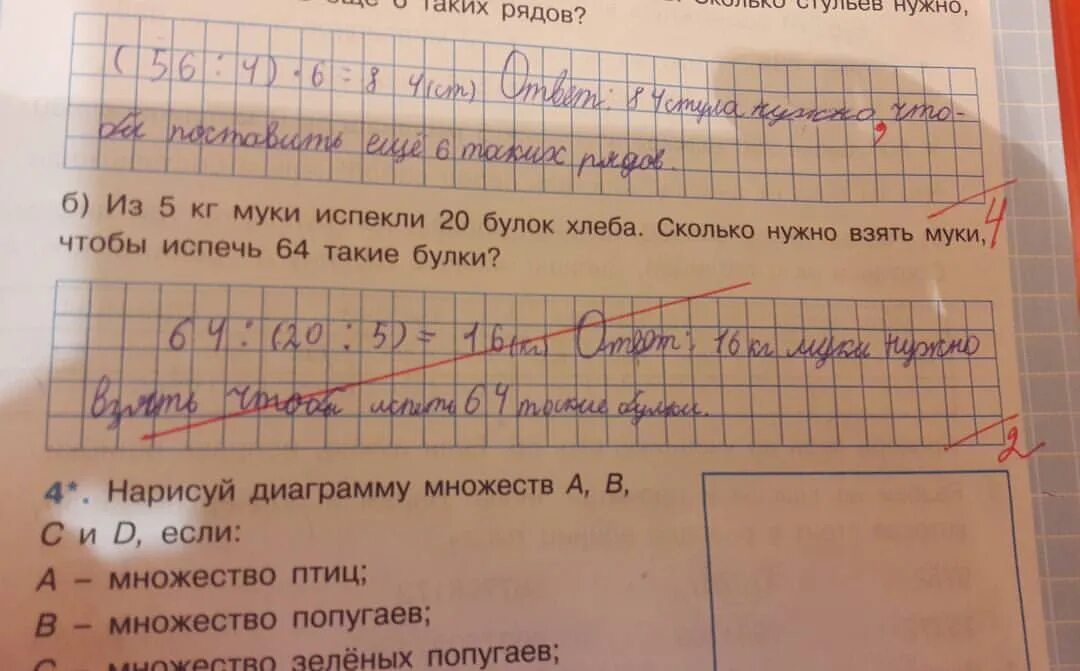 таких рядов?
стульев нужно,
(56 : 4) · 6 = 84(ст) Ответ: 84 стула нужно, что-
бы поставить ещё 6 таких рядов.
4
б) Из 5 кг муки испекли 20 булок хлеба. Сколько нужно взять муки,
чтобы испечь 64 такие булки?
64 : (20 : 5) = 16(кг) Ответ: 16 кг муки нужно
взять чтобы испечь 64 такие булки.
2
4*. Нарисуй диаграмму множеств A, B,
C и D, если:
A – множество птиц;
B – множество попугаев;
C – множество зелёных попугаев;